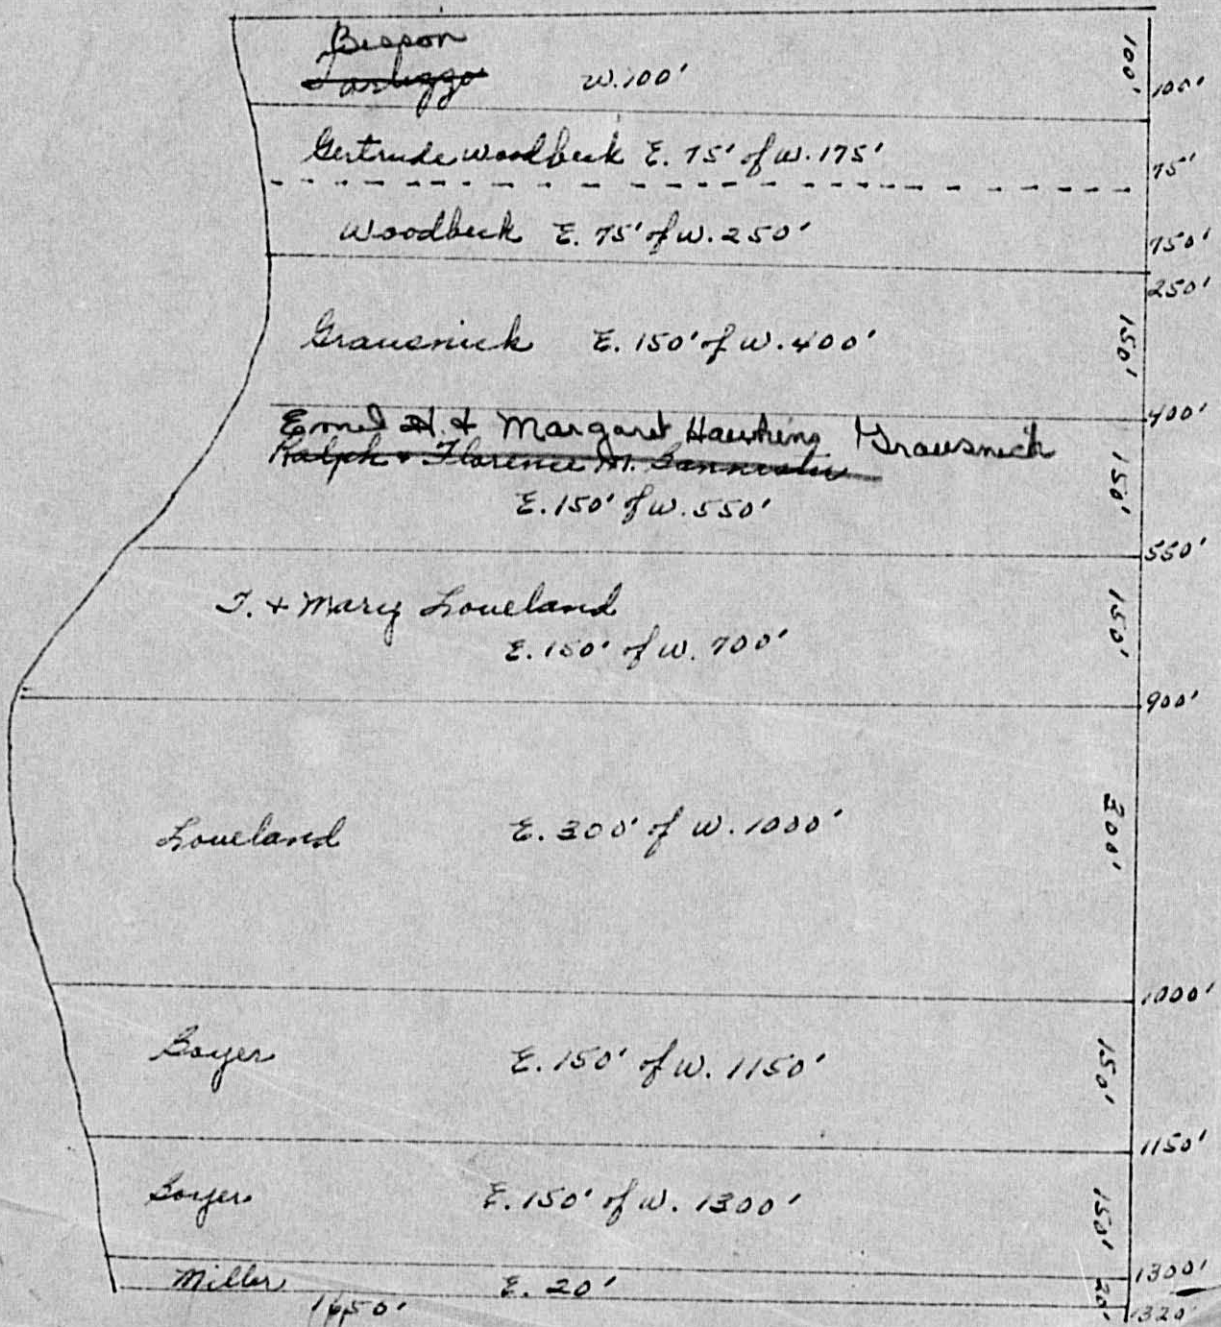 Bisson
w. 100'
100'
100'
Gertrude Woodbeck E. 75' of w. 175'
75'
Woodbeck E. 75' of w. 250'
750'
250'
Grausnick E. 150' of w. 400'
150'
400'
Emil H. + Margaret Hawking Grausnick
Ralph + Florence M. Bannister
E. 150' of w. 550'
150'
550'
J. + Mary Loveland
E. 150' of w. 700'
150'
900'
Loveland E. 300' of w. 1000'
300'
1000'
Boyer E. 150' of w. 1150'
150'
1150'
Boyer E. 150' of w. 1300'
150'
1300'
Miller E. 20'
20'
1320'
1650'